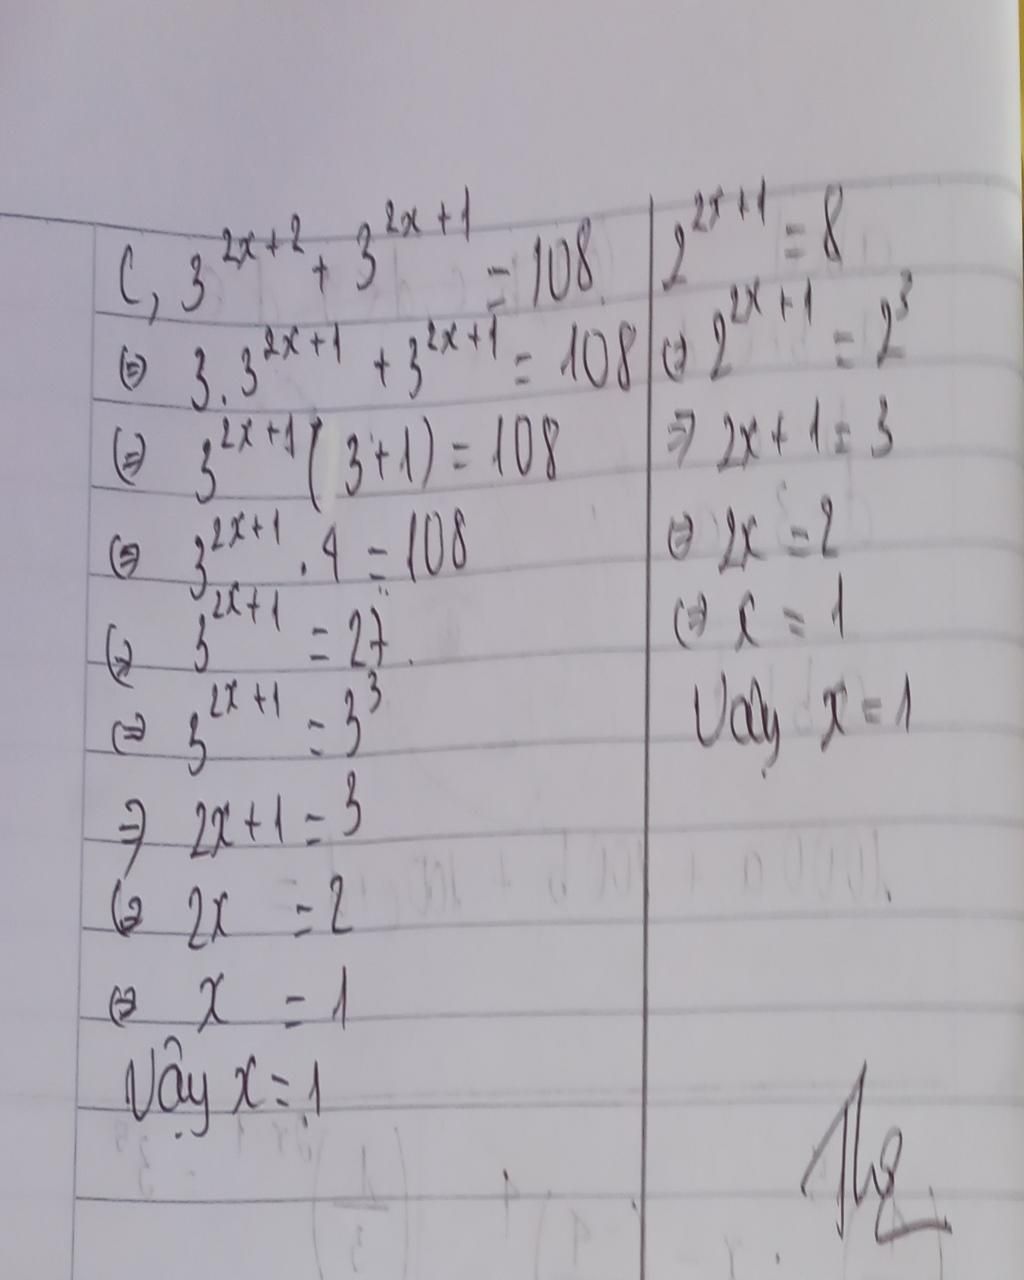 C, 3^{2x+2} + 3^{2x+1} = 108
⇔ 3.3^{2x+1} + 3^{2x+1} = 108
⇔ 3^{2x+1}(3+1) = 108
⇔ 3^{2x+1} . 4 = 108
⇔ 3^{2x+1} = 27.
⇔ 3^{2x+1} = 3^3
⇒ 2x+1 = 3
⇔ 2x = 2
⇔ x = 1
Vậy x = 1
2^{2x+1} = 8
⇔ 2^{2x+1} = 2^3
⇒ 2x+1 = 3
⇔ 2x = 2
⇔ x = 1
Vậy x = 1